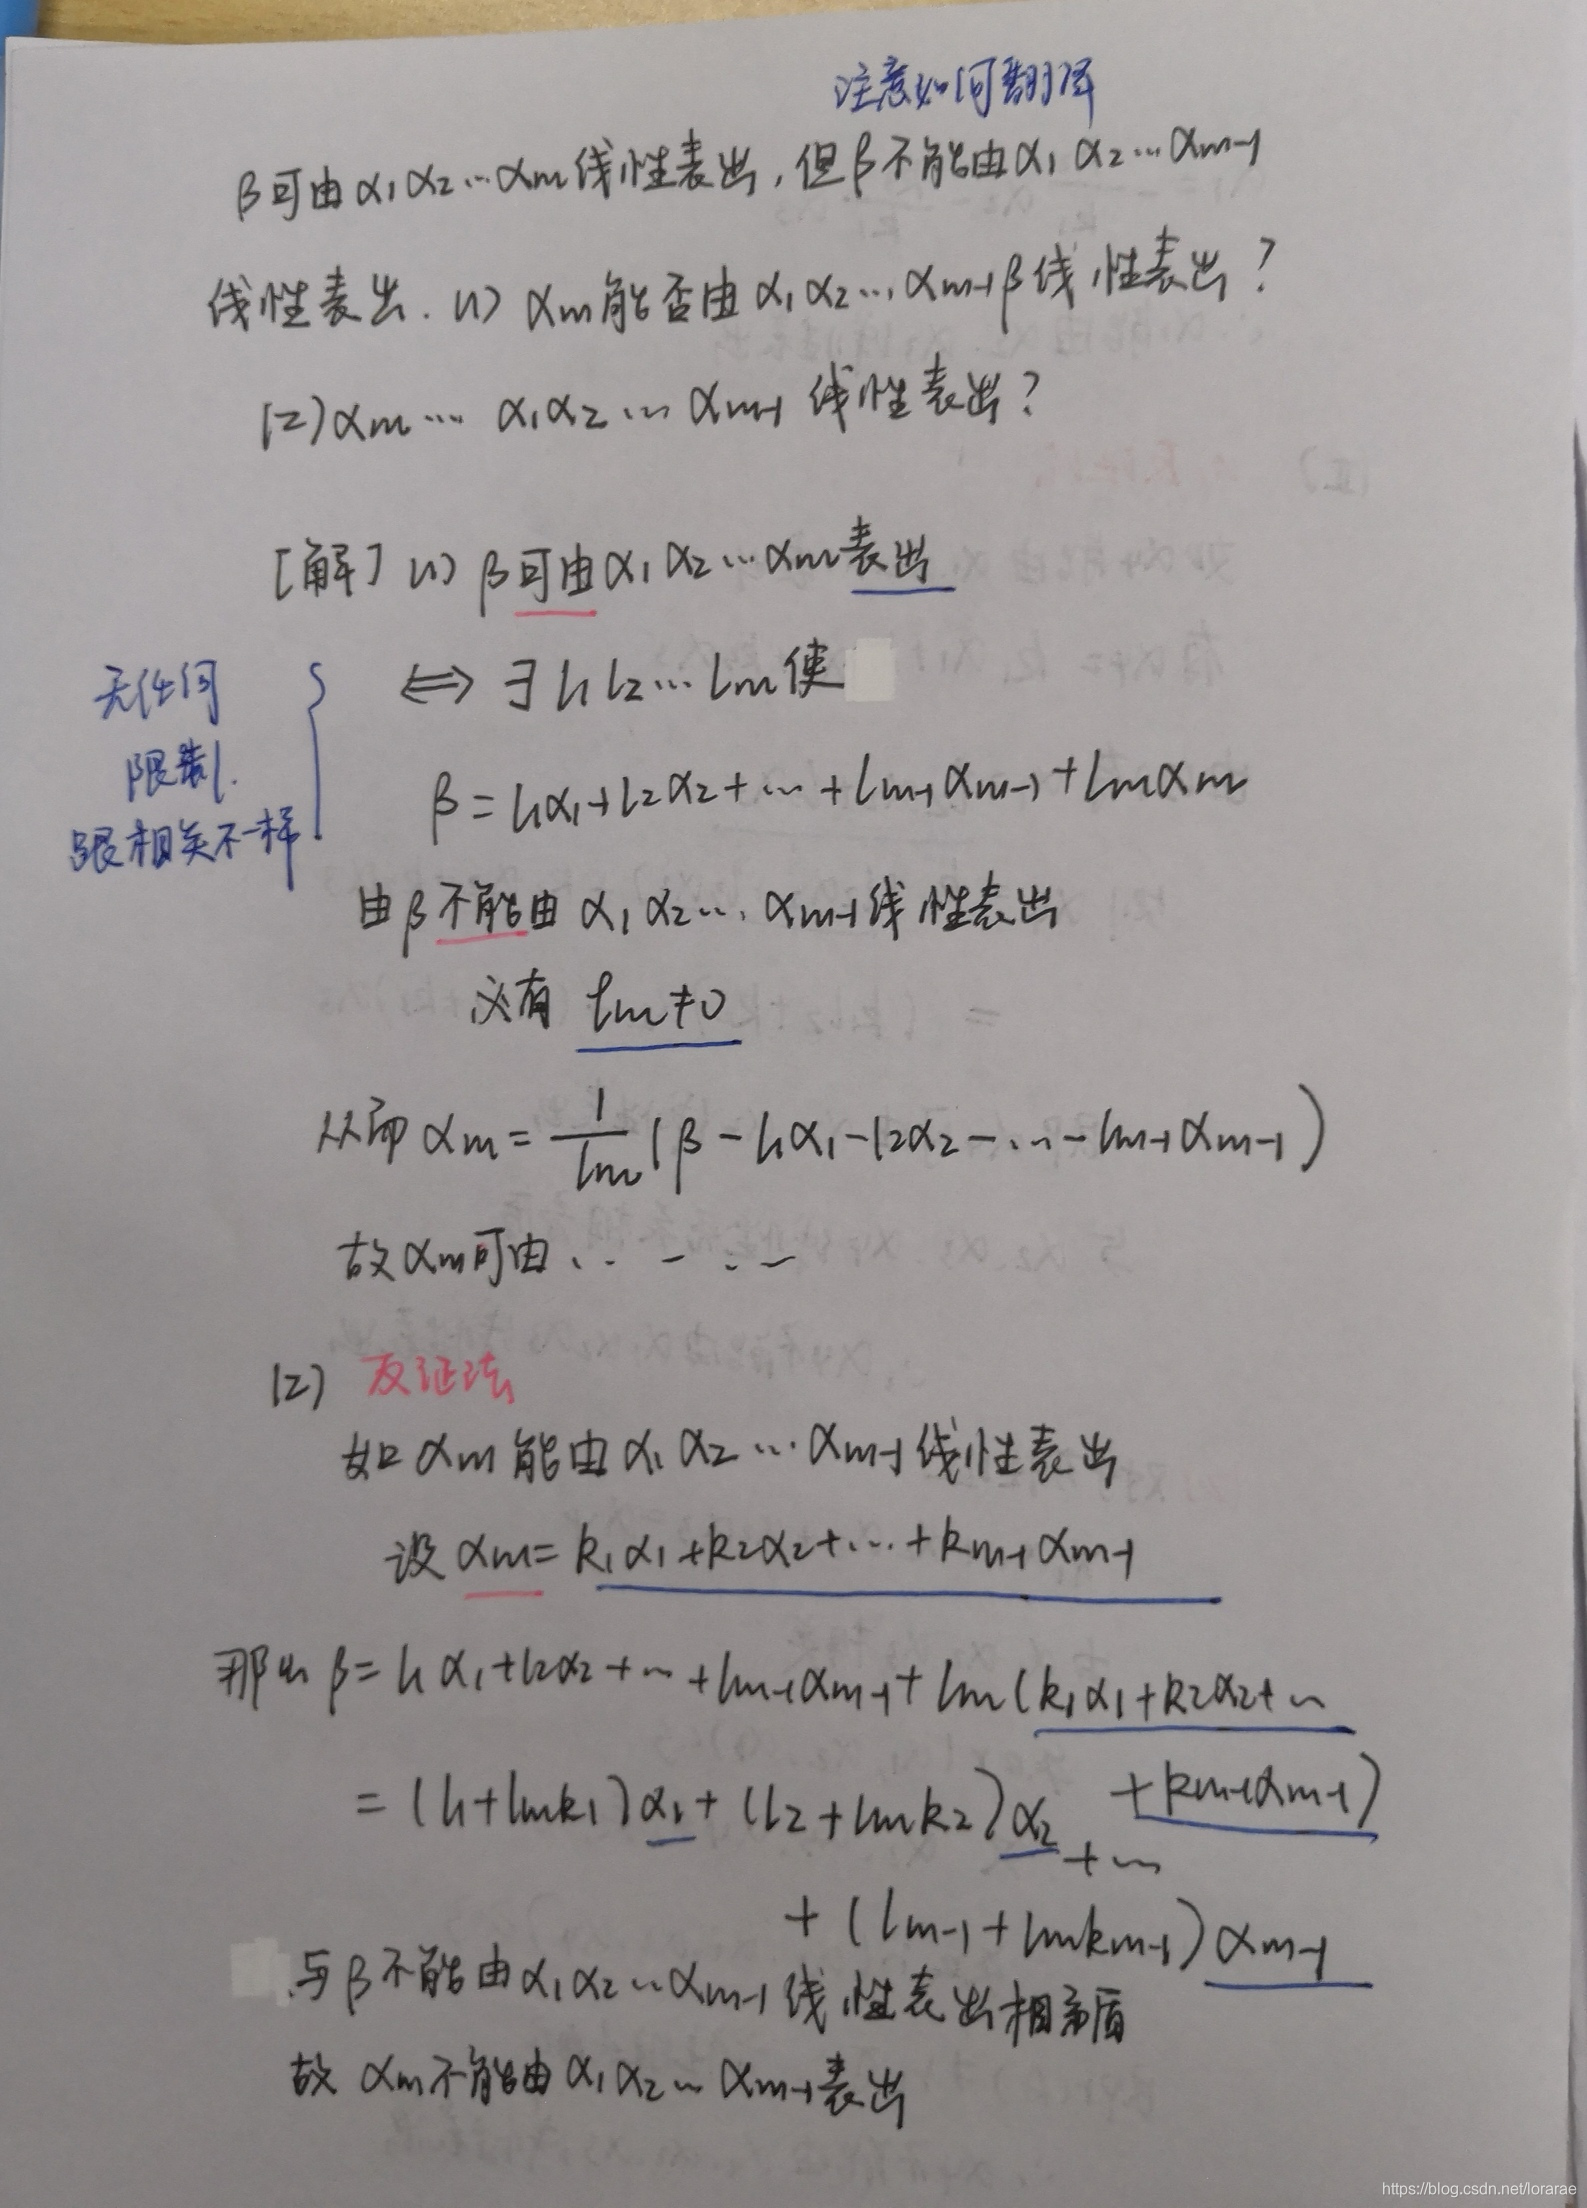 注意如何翻译
β可由α₁α₂…αm线性表出,但β不能由α₁α₂…αm-1
线性表出.(1)αm能否由α₁α₂…αm-1β线性表出?
(2)αm… α₁α₂…αm-1 线性表出?
[解](1)β可由α₁α₂…αm表出
⟺ ∃ l₁l₂…lm使
无任何
限制.
跟相关不一样
β=l₁α₁+l₂α₂+…+lm-1αm-1+lmαm
由β不能由α₁α₂…αm-1线性表出
必有 lm≠0
从而αm=1/lm(β-l₁α₁-l₂α₂-…-lm-1αm-1)
故αm可由……
(2) 反证法
如αm能由α₁α₂…αm-1线性表出
设αm=k₁α₁+k₂α₂+…+km-1αm-1
那么β=l₁α₁+l₂α₂+…+lm-1αm-1+lm(k₁α₁+k₂α₂+…
+km-1αm-1)
=(l₁+lmk₁)α₁+(l₂+lmk₂)α₂+…
+(lm-1+lmkm-1)αm-1
与β不能由α₁α₂…αm-1线性表出相矛盾
故αm不能由α₁α₂…αm-1表出
https://blog.csdn.net/lorarae